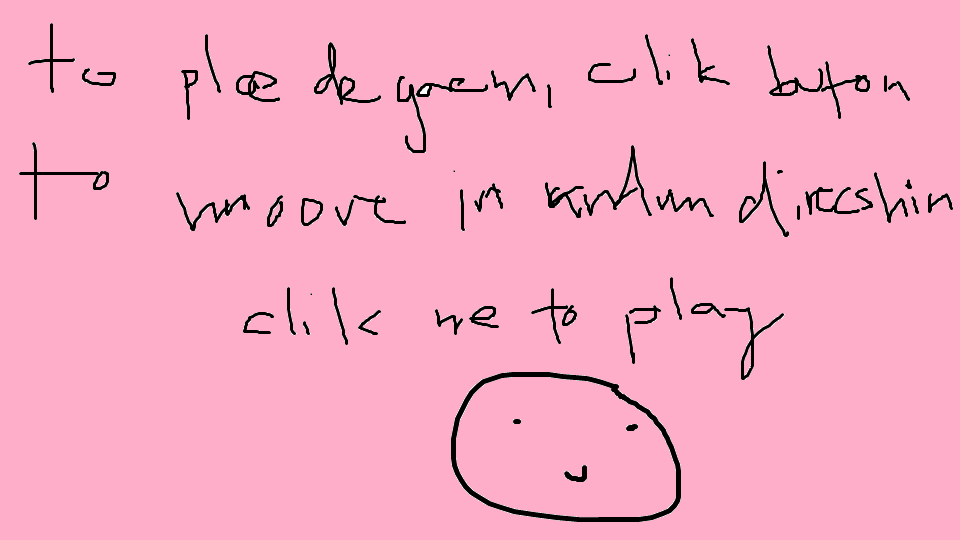 to plae de gaem, clik buton
to moove in random direcshin
clik me to play